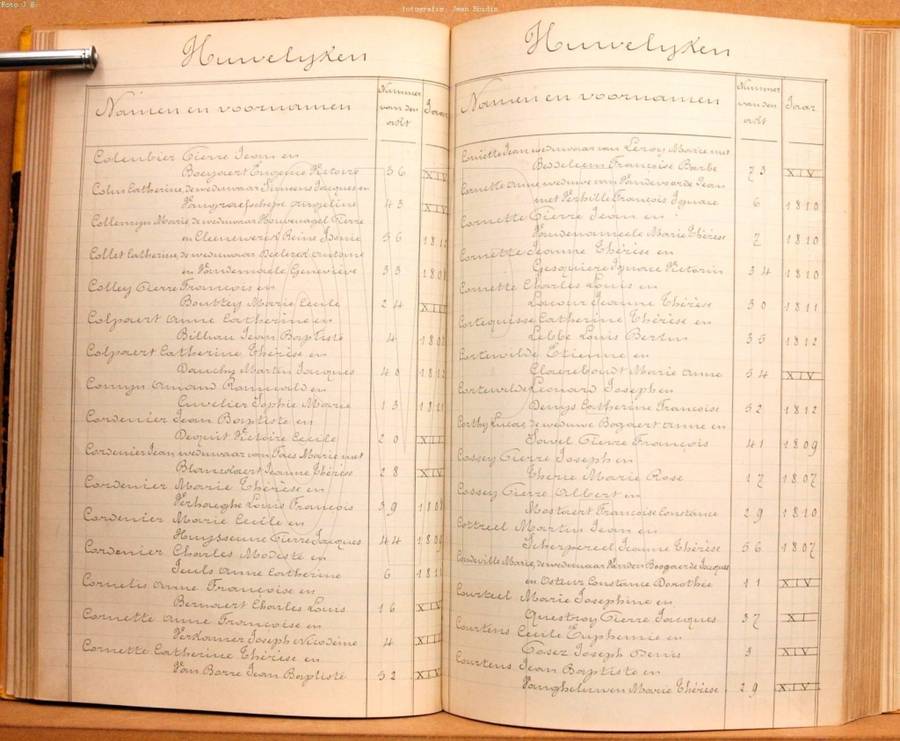 Foto J B.
fotografie: Jean Boudin
Huwelyken
Namen en voornamen Nummer van den acht Jaar
Colenbier Pierre Jean en
Boeyaert Eugenie Victoire 36 XIV
Colin Catherine, deweduwaar Simoens Jacques en
Vangraefschepe Angeline 43 XIV
Collemyn Marie, deweduwaar Bouvenagel Pierre
en Cleenewerck Reine Isenie 56
Collet Catherine, deweduwaar Beelaerd Antoine
en Vandermaele Genevieve 33
Colley Pierre Francois en
Boutley Marie Cecile 24 XIII
Colpaert Anne Catherine en
Billiau Jean Baptiste 4
Colpaert Catherine Thérèse en
Dauchy Martin Jacques 40 1812
Comyn Amand Romuald en
Cuvelier Sophie Marie 13
Cordenier Jean Baptiste en
Dequit Victoire Cecile 20 XIII
Cordenier Jean weduwaar van Faes Marie met
Blanckaert Jeanne Thérèse 28 XIV
Cordenier Marie Thérèse en
Verhaeghe Louis Francois 39
Cordenier Marie Cecile en
Huyssenne Pierre Jacques 44
Cordenier Charles Modeste en
Seuls Anne Catherine 6
Cornelis Anne Francoise en
Bernaert Charles Louis 16 XIV
Cornette Anne Francoise en
Verkamer Joseph Nicodème 4 XIII
Cornette Catherine Thérèse en
Van Borre Jean Baptiste 52 XIV
Huwelyken
Namen en voornamen Nummer van den acht Jaar
Cornette Jean weduwaar van Leroy Marie met
Besseleem Françoise Barbe 73 XIV
Cornette Anne weduwe van Vandevoorde Jean
met Verhille François Ignace 6 1810
Cornette Pierre Jean en
Vandenameele Marie Thérèse 7 1810
Cornette Jeanne Thérèse en
Gesquiere Ignace Victorin 34 1810
Cornette Charles Louis en
Lacour Jeanne Thérèse 30 1811
Cortequisse Catherine Thérèse en
Lebbe Louis Bertin 35 1812
Cortewilde Etienne en
Claereboudt Marie Anne 54 XIV
Cortewilde Leonard Joseph en
Denys Catherine Francoise 52 1812
Corthy Lucas, deweduwe Bogaert Anne en
Pierre François 41 1809
Cossey Pierre Joseph en
Therie Marie Rose 17 1807
Cossey Pierre Albert en
Mostaert Francoise Constance 29 1810
Cottreel Martin Jean en
Scherpereel Jeanne Thérèse 56 1807
Marie, deweduwaar Vanden Bogaerde Jacques
en Osteur Constance Dorothée 11 XIV
Courteel Marie Josephine en
Questroy Pierre Jacques 37 XI
Courtens Cecile Euphemie en
Gosez Joseph Denis 3 XIV
Courtens Jean Baptiste en
Vangheluwen Marie Thérèse 29 XIV